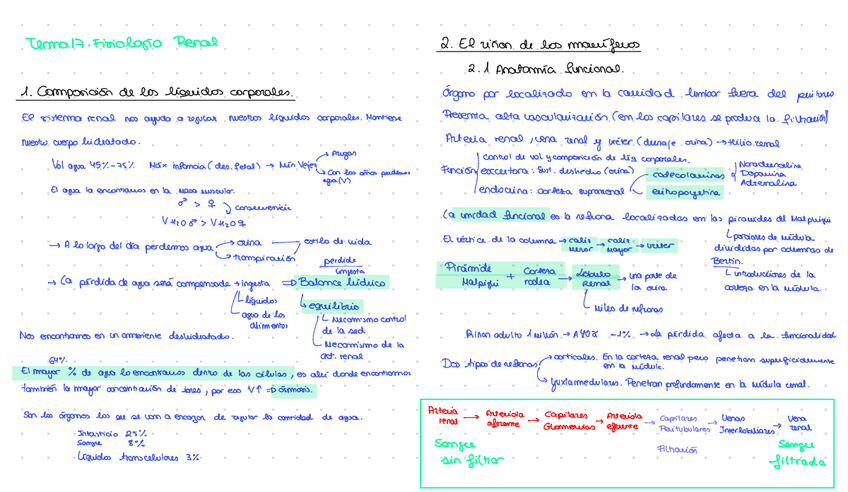 Tema 17. Fisiología Renal
1. Composición de los líquidos corporales.
El sistema renal nos ayuda a regular nuestros líquidos corporales. Mantiene
nuestro cuerpo hidratado.
Vol agua 45% - 75% Máx infancia (des. fetal) → Mín Vejez → Arrugas
→ Con los años perdemos agua (V)
El agua la encontramos en la masa muscular.
♂ > ♀
V H2O ♂ > V H2O ♀ consecuencia
→ A lo largo del día perdemos agua → orina → estilo de vida
→ transpiración
perdida
ingesta
→ La pérdida de agua será compensada → ingesta ⇒ Balance hídrico
líquidos
agua de los alimentos
equilibrio
Mecanismo control de la sed
Mecanismo de la act. renal
Nos encontramos en un ambiente deshidratado.
64%
El mayor % de agua lo encontramos dentro de las células, es ahí donde encontramos
también la mayor concentración de iones, por eso V↑ ⇒ ósmosis.
Son los órganos los que se van a encargar de regular la cantidad de agua.
· Intersticio 25%
· Sangre 8%
· Líquidos transcelulares 3%
2. El riñon de los mamíferos
2.1 Anatomía funcional.
Órgano par localizado en la cavidad lumbar fuera del peritoneo
Presenta alta vascularización (en los capilares se produce la filtración)
Arteria renal, vena renal y uréter (drenaje orina) → Hilio renal
Función
control de vol y composición de líq corporales.
excretora: sust. deshecho (orina)
endocrina: corteza suprarrenal
catecolaminas
Noradrenalina
Dopamina
Adrenalina
eritropoyetina
La unidad funcional es la nefrona localizadas en las pirámides de Malpighi
porciones de médula divididas por columnas de Bertin.
introducciones de la corteza en la médula
El vértice de la columna → caliz menor → caliz mayor → uréter
Pirámide Malpigi + Corteza rodea → Lóbulo Renal → una parte de la orina
miles de nefronas
Riñon adulto 1 millón → A 40% -1% → La pérdida afecta a la funcionalidad
Dos tipos de nefronas
corticales. En la corteza renal pero penetran superficialmente en la médula.
yuxtamedulares. Penetran profundamente en la médula renal.
Arteria renal → Arteriola aferente → Capilares Glomerulus → Arteriola eferente → Capilares Peritubulares → Venas Interlobulares → Vena renal
Sangre sin filtrar
Filtración
Sangre filtrada